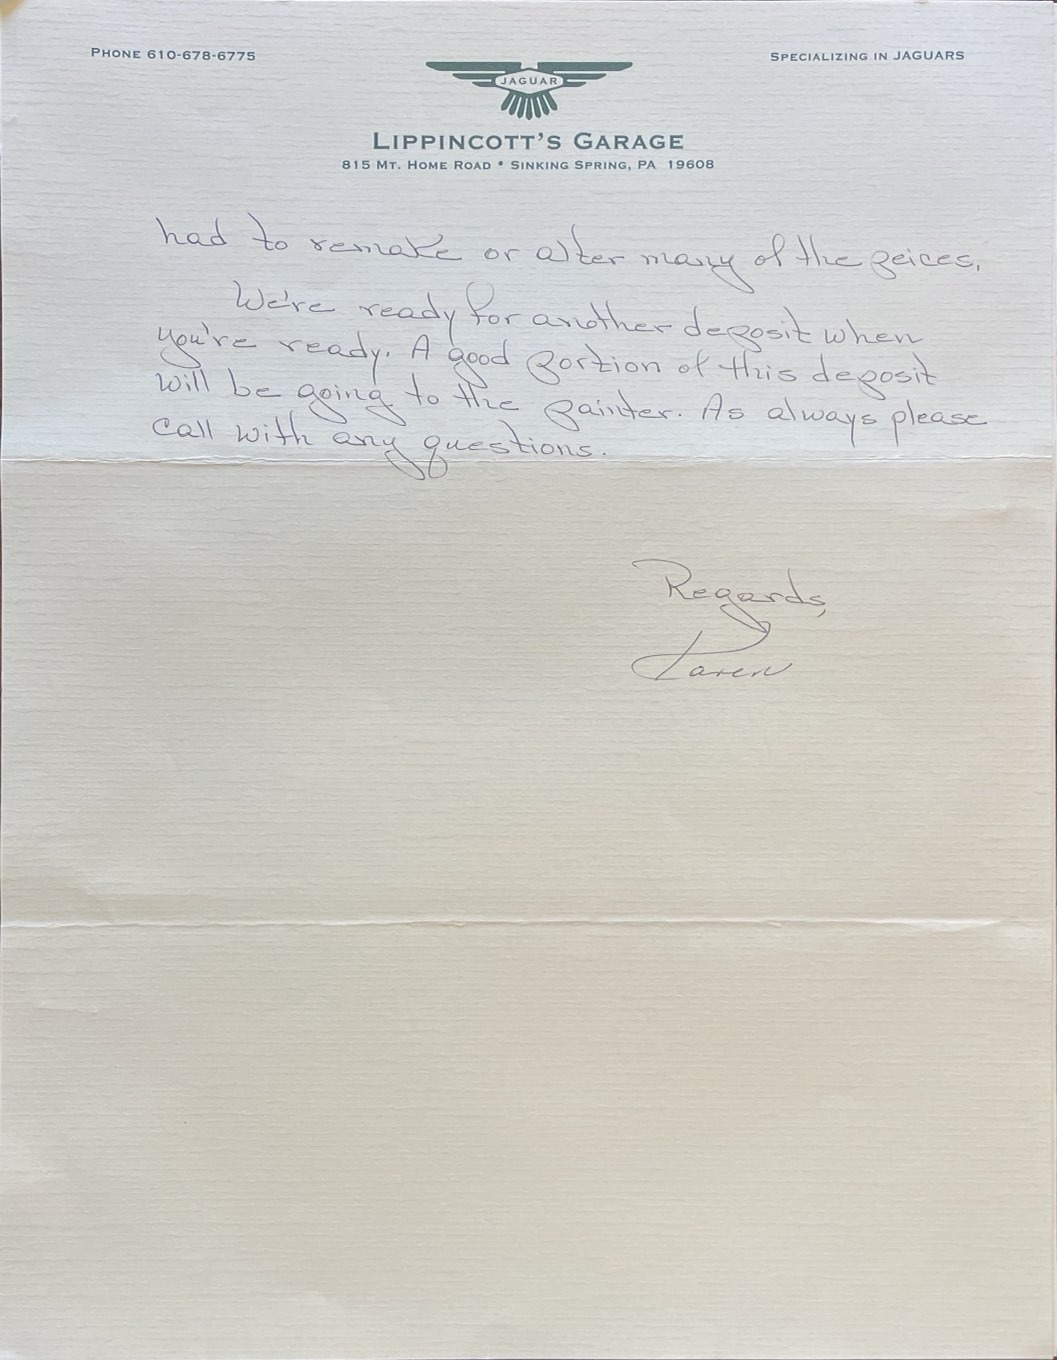 PHONE 610-678-6775
SPECIALIZING IN JAGUARS
JAGUAR
LIPPINCOTT'S GARAGE
815 MT. HOME ROAD • SINKING SPRING, PA 19608
had to remake or alter many of the peices.
We're ready for another deposit when
you're ready. A good portion of this deposit
will be going to the painter. As always please
call with any questions.
Regards,
Karen